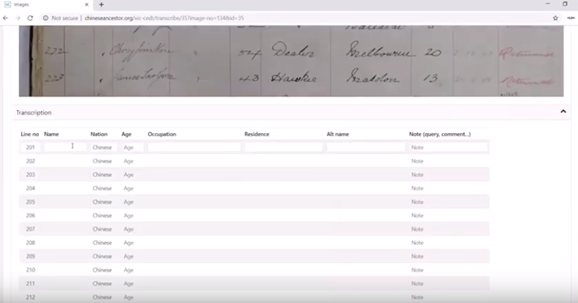 Images
Not secure | chineseancestor.org/vic-cedt/transcribe/35?image-no=134&id=35
222 " 52 Dealer Melbourne 20 Returned
223 " 43 13
Transcription
Line no Name Nation Age Occupation Residence Alt name Note (query, comment...)
201 Chinese Age Note
202 Chinese Age Note
203 Chinese Age Note
204 Chinese Age Note
205 Chinese Age Note
206 Chinese Age Note
207 Chinese Age Note
208 Chinese Age Note
209 Chinese Age Note
210 Chinese Age Note
211 Chinese Age Note
212 Chinese Age Note